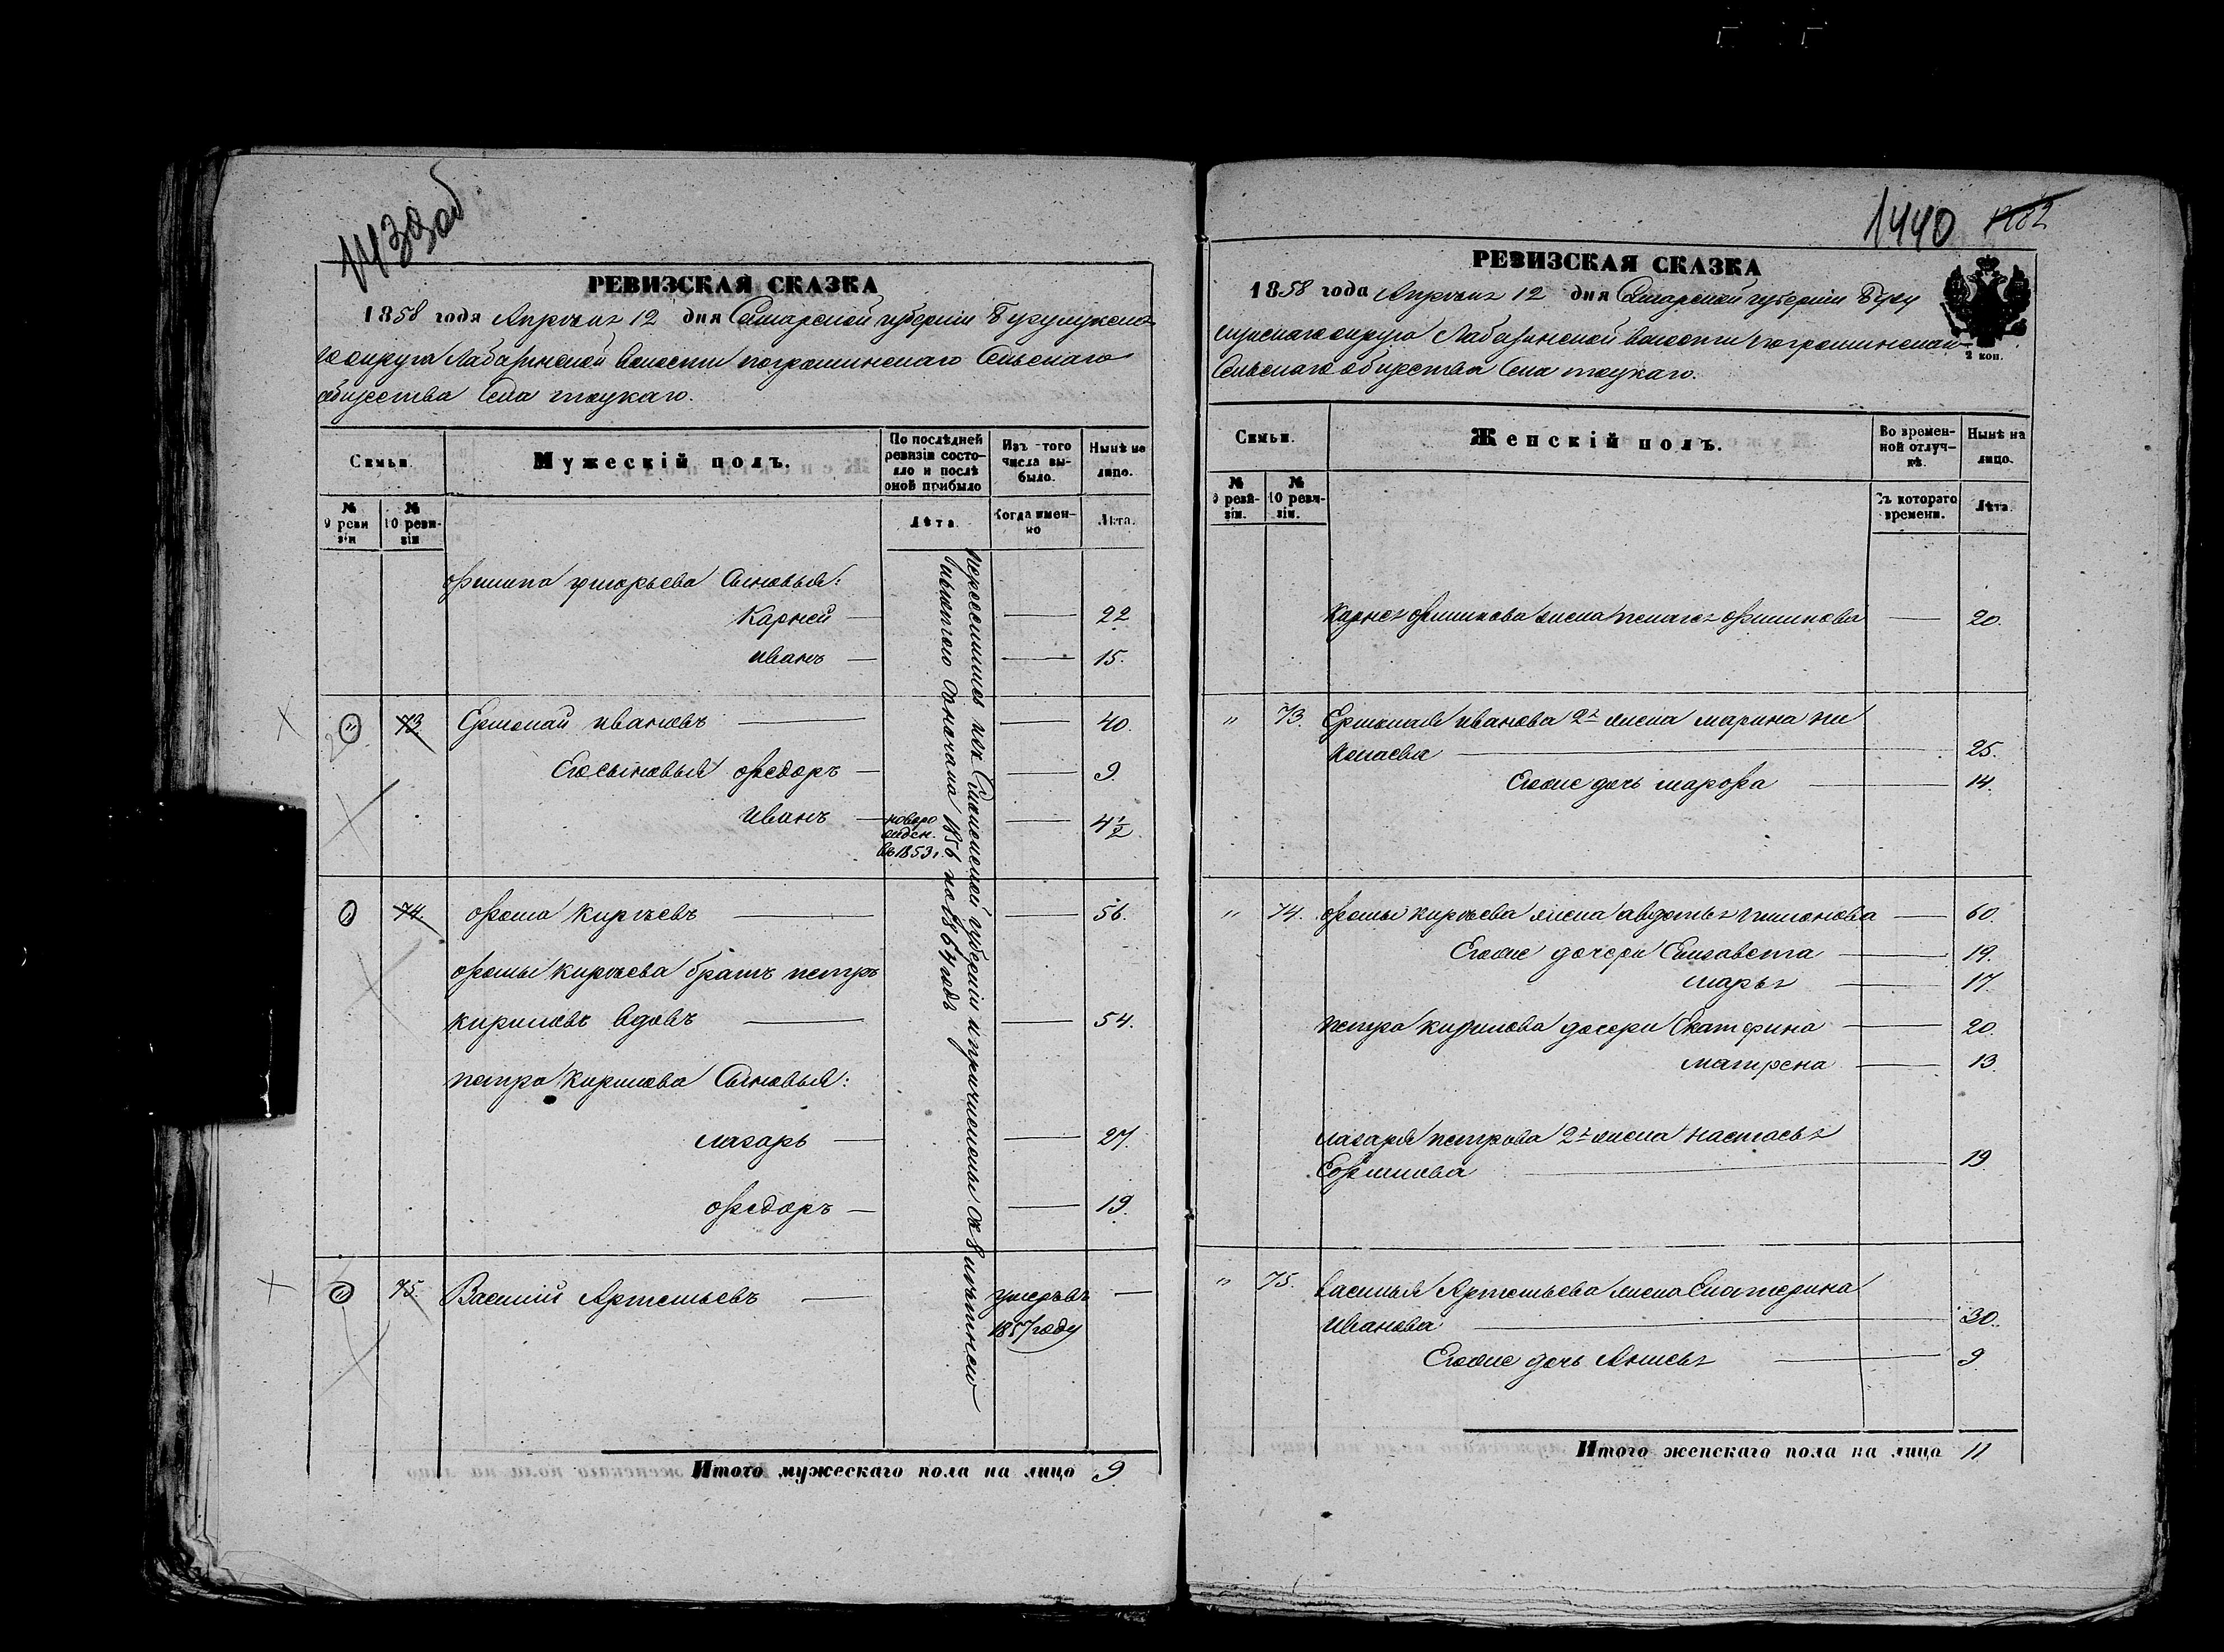 1439 об
РЕВИЗСКАЯ СКАЗКА
1858 года Апрѣля 12 дня Самарской губерніи Бугурусланска
го округа Лабазинской волости погроминскаго Сельскаго
общества Села тоцкаго.
Семьи.
Мужескій полъ.
По послѣдней ревизіи состояло и послѣ оной прибыло
Изъ того числа выбыло.
Нынѣ на лицо.
№ 9 ревизіи
№ 10 ревизіи
Лѣта.
Когда именно
Лѣта.
филипа григорьева Сыновья:
Карней — 22
иванъ — 15.
" 73. Ермолай ивановъ — 40.
Его сыновья федоръ — 9.
иванъ — новорожден. въ 1853 г. — 4½
" 74. фома кирѣевъ — 56.
фомы кирѣева братъ петръ
кириловъ вдовъ — 54.
петра кирилова Сыновья:
лазарь — 27.
федоръ — 19.
" 75. Василий Артемьевъ — умеръ въ 1857 году —
переселились изъ губерніи и причислены съ
1856 на 18 годъ
Итого мужескаго пола на лицо 9.
1440
РЕВИЗСКАЯ СКАЗКА
1858 года Апрѣля 12 дня Самарской губерніи Бугу
округа Лабазинской волости погроминскаго
Сельскаго общества Села тоцкаго.
2 коп.
Семьи.
Женскій полъ.
Во временной отлучкѣ.
Нынѣ на лицо.
№ 9 ревизіи.
№ 10 ревизіи.
Съ котораго времени.
Лѣта.
Карнея филипова жена пелагея филипова — 20.
" 73. Ермолая иванова 2я жена марина ни
колаева — 25.
Его же дочь марфа — 14.
" 74. фомы кирѣева жена авдотья — 60.
Его же дочери Елизавета — 19.
марья — 17.
петра кирилова дочери Екатерина — 20.
матрена — 13.
лазаря петрова 2я жена настасья
Ефимова — 19
" 75. василья Артемьева жена Екатерина
Иванова — 30.
Его же дочь Анисья — 9.
Итого женскаго пола на лицо 11